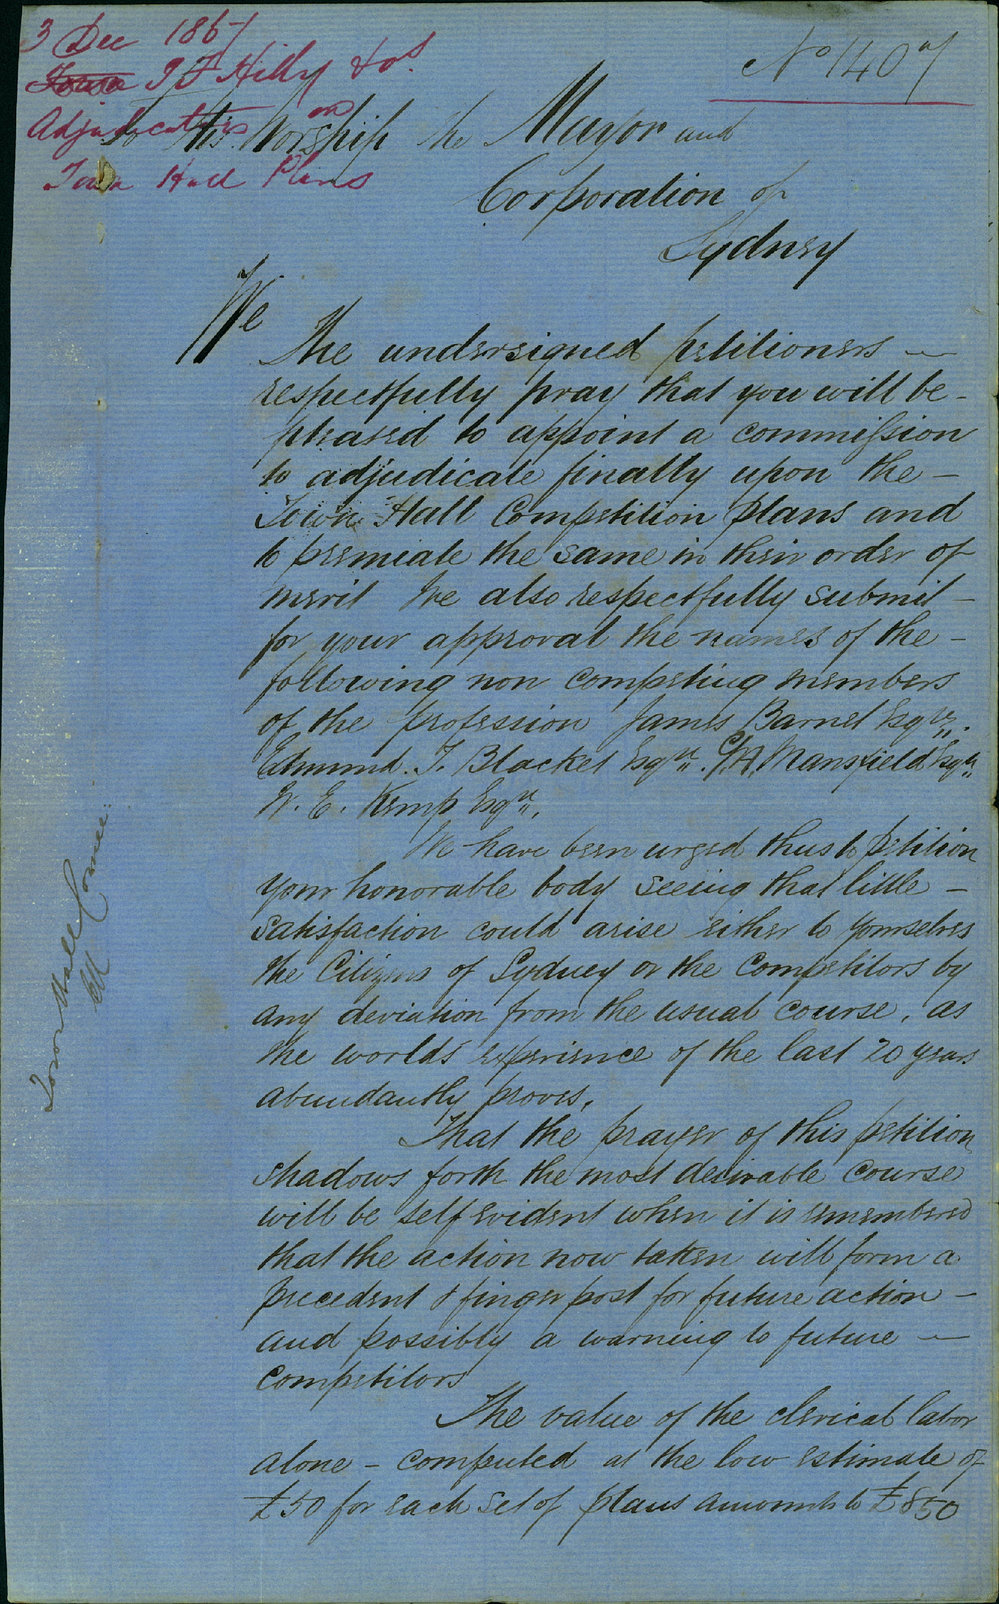 3 Dec 1867
Town J F Hilly & ors
Adjudicators on
Town Hall Plans
No 1407
To His Worship the Mayor and
Corporation of
Sydney
We
The undersigned petitioners —
respectfully pray that you will be-
pleased to appoint a commission
to adjudicate finally upon the -
Town Hall Competition plans and
to premiate the same in their order of
merit We also respectfully submit -
for your approval the names of the -
following non competing members
of the profession James Barnet Esqre.
Edmund. T. Blacket Esqre. G A. Mansfield Esqre
W. E. Kemp Esqre.
We have been urged thus to petition
your honorable body seeing that little -
satisfaction could arise either to yourselves
the Citizens of Sydney or the Competitors by
any deviation from the usual course, as
the worlds experience of the last 20 years
abundantly proves,
That the prayer of this petition
shadows forth the most desirable course
will be self evident when it is remembered
that the action now taken will form a
precedent & finger post for future action -
and possibly a warning to future —
competitors
The value of the clerical labor
alone - computed at the low estimate of
£50 for each set of plans amounts to £850
Town Hall Comee